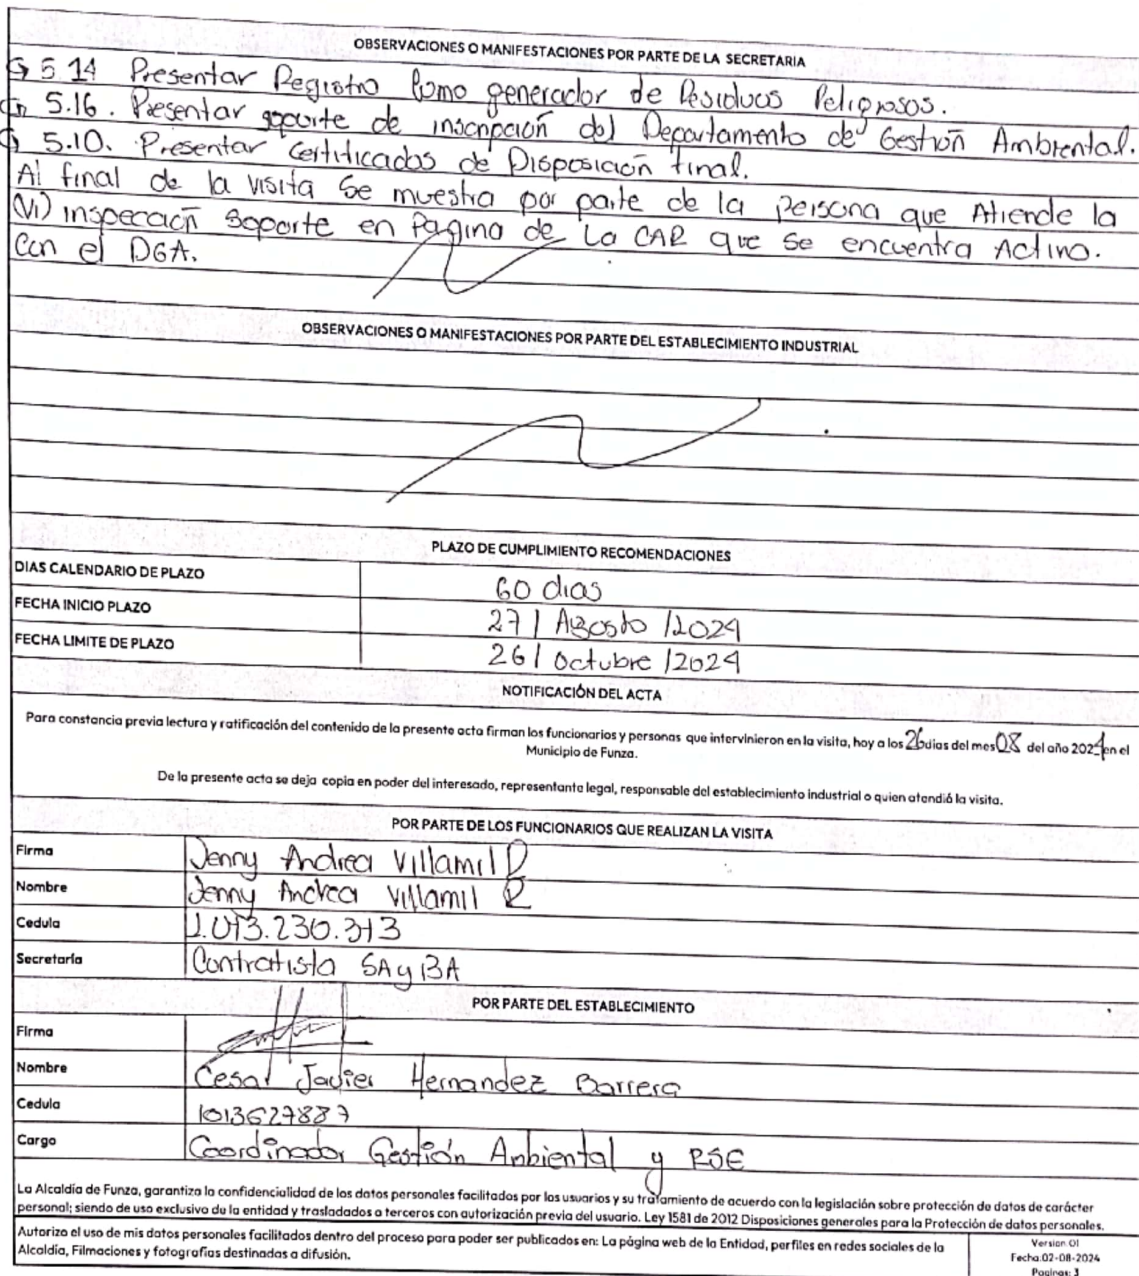 OBSERVACIONES O MANIFESTACIONES POR PARTE DE LA SECRETARIA
5.14 Presentar Registro como generador de Residuos Peligrosos.
5.16. Presentar soporte de inscripción del Departamento de Gestión Ambiental.
5.10. Presentar Certificados de Disposición final.
Al final de la visita se muestra por parte de la persona que Atiende la
(Vi) inspección soporte en Pagina de La CAR que se encuentra Activo.
Con el DGA.
OBSERVACIONES O MANIFESTACIONES POR PARTE DEL ESTABLECIMIENTO INDUSTRIAL
PLAZO DE CUMPLIMIENTO RECOMENDACIONES
DIAS CALENDARIO DE PLAZO 60 dias
FECHA INICIO PLAZO 27 / Agosto / 2024
FECHA LIMITE DE PLAZO 26 / Octubre / 2024
NOTIFICACIÓN DEL ACTA
Para constancia previa lectura y ratificación del contenido de la presente acta firman los funcionarios y personas que intervinieron en la visita, hoy a los 26 dias del mes 08 del año 2024 en el
Municipio de Funza.
De la presente acta se deja copia en poder del interesado, representante legal, responsable del establecimiento industrial o quien atendió la visita.
POR PARTE DE LOS FUNCIONARIOS QUE REALIZAN LA VISITA
Firma Jenny Andrea Villamil R
Nombre Jenny Andrea Villamil R
Cedula
Secretaría Contratista SAyBA
POR PARTE DEL ESTABLECIMIENTO
Firma
Nombre Cesar Javier Hernandez Barrera
Cedula 1013627887
Cargo Coordinador Gestión Ambiental y RSE
La Alcaldía de Funza, garantiza la confidencialidad de los datos personales facilitados por los usuarios y su tratamiento de acuerdo con la legislación sobre protección de datos de carácter
personal; siendo de uso exclusivo de la entidad y trasladados a terceros con autorización previa del usuario. Ley 1581 de 2012 Disposiciones generales para la Protección de datos personales.
Autorizo el uso de mis datos personales facilitados dentro del proceso para poder ser publicados en: La página web de la Entidad, perfiles en redes sociales de la
Alcaldía, Filmaciones y fotografías destinadas a difusión.
Version 01
Fecha:02-08-2024
Paginas: 3